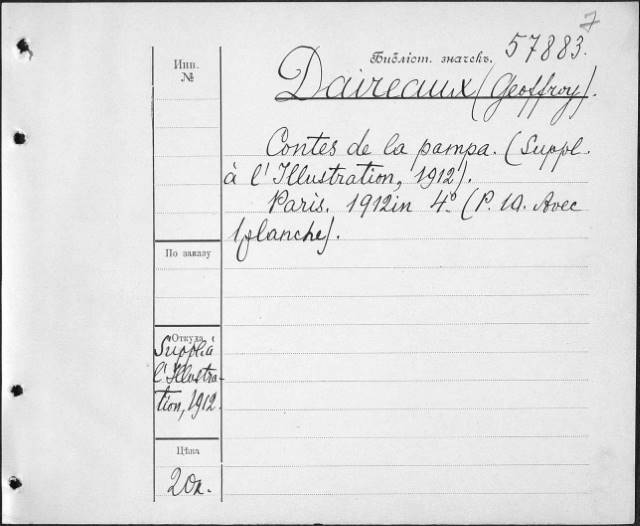 7
Инв.
№
Библіот. значекъ. 57883.
Daireaux (Geoffroy).
Contes de la pampa. (Suppl.
à l'Illustration, 1912).
Paris. 1912 in 4º (P. 10. Avec
1 planche).
По заказу
Откуда.
Suppl. à
l'Illustra-
tion, 1912.
Цѣна
20к.